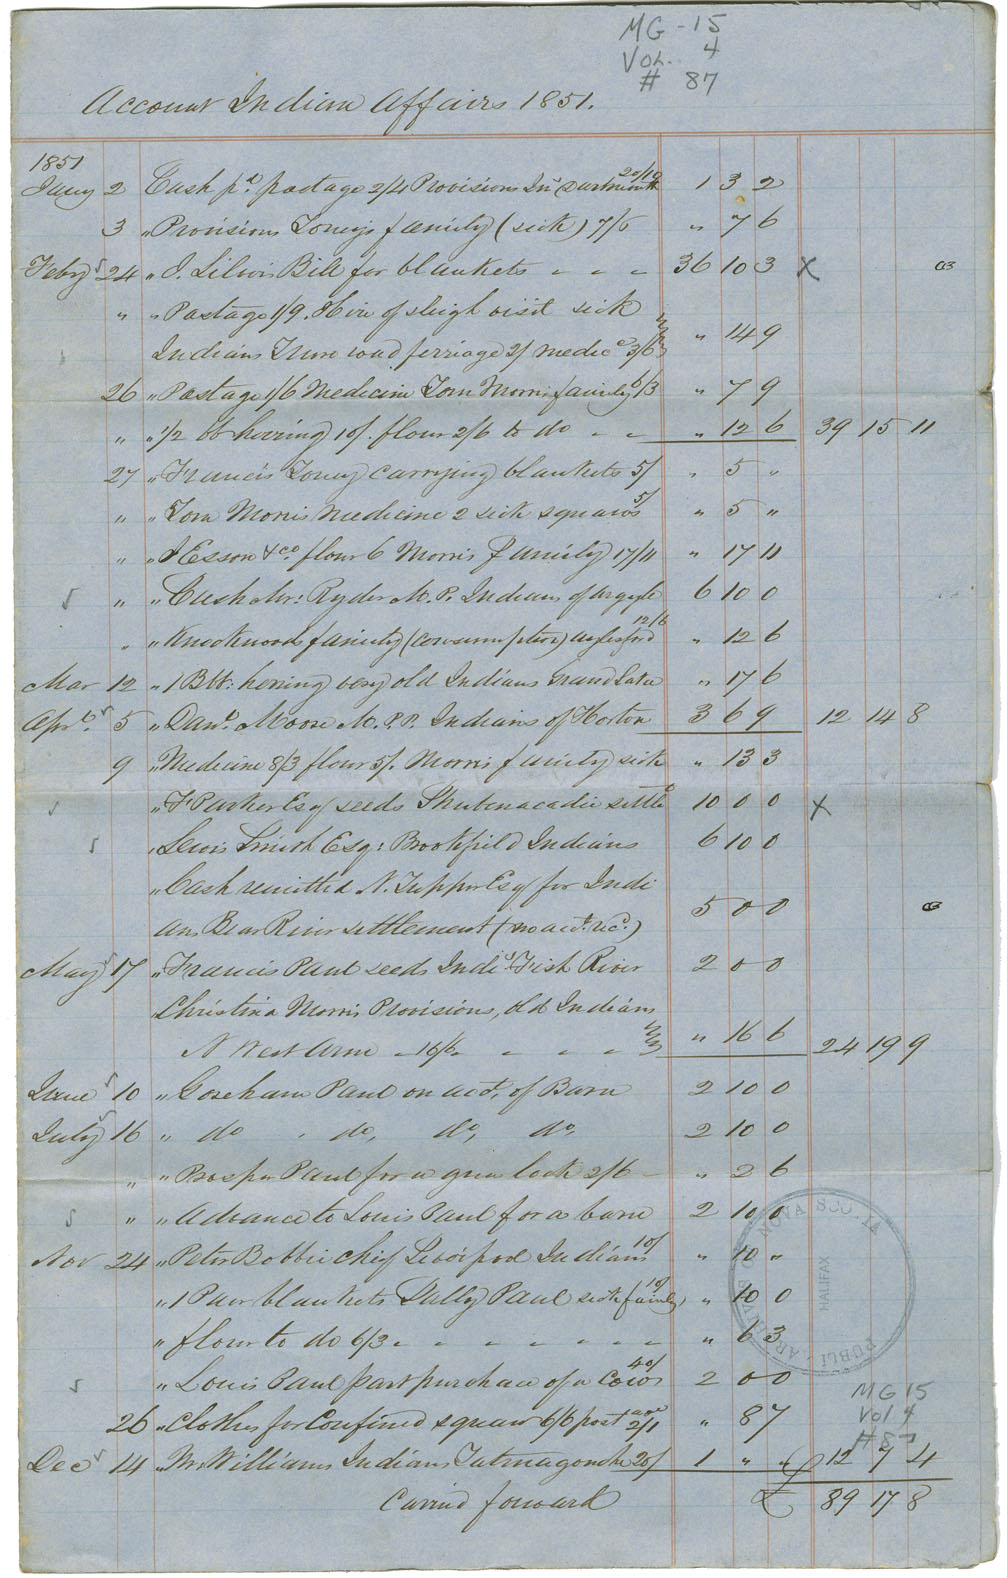 MG-15
Vol. 4
# 87
Account Indian Affairs 1851.
1851
Jany 2 Cash pd. postage 2/4 Provisions 20/10 1 3 2
3 " Provisions Toney's family (sick) 7/6 " 7 6
Feby 24 " Bill for blankets - - - 36 10 3 X
" " Postage 1/9. Hire of sleigh visit sick
Indians Truro road ferriage 2/ medic 3/6 " 14 9
26 " Postage 1/6 Medicine Tom Morris family 6/3 " 7 9
" " 1/2 bb herring 10/. flour 2/6 to do - - " 12 6 39 15 11
27 " Francis Toney carrying blankets 5/ " 5 "
" " Tom Morris medicine 2 sick squaws 5/ " 5 "
" " J Esson & co. flour 6 Morris family 17/11 " 17 11
" " Cash Mr: Ryder M.P. Indians of Argyle 6 10 0
" " Knockwoods family (consumption) Aylesford 12/6 " 12 6
Mar 12 " 1 Bbl: herring very old Indians Grand Lake " 17 6
Apr. 5 " Danl. Moore M.P.P. Indians of Horton 3 6 9 12 14 8
9 " Medicine 8/3 flour 5/. Morris family sick " 13 3
" F Parker Esq seeds Shubenacadie settle 10 0 0 X
" Lewis Smith Esq: Brookfield Indians 6 10 0
" Cash remitted N. Tupper Esq for Indi
ans Bear River settlement (no acct. rec.) 5 0 0
May 17 " Francis Paul seeds Indi Fish River 2 0 0
" Christina Morris Provisions, old Indians
N West Arm - 16/6 - - - - " 16 6 24 19 9
June 10 " Goreham Paul on acct. of Barn 2 10 0
July 16 " do " do, do, do, 2 10 0
" " Prosper Paul for a gun lock 2/6 - " 2 6
" " Advance to Louis Paul for a barn 2 10 0
Nov 24 " Peter Bobbie chief Liverpool Indians 10/ " 10 "
" 1 Pair blankets Sally Paul sick family 10/ " 10 0
" flour to do 6/3 - - - - - - - " 6 3
" Louis Paul part purchase of a Cow 40/ 2 0 0
26 " Clothes for Confined squaw 6/6 post 2/1 " 8 7
Dec 14 " Mr Williams Indians Tatmagouche 20/ 1 " " £ 12 7 4
Carried forward £ 89 17 8
NOVA SCOTIA
HALIFAX
MG 15
Vol 4
# 87